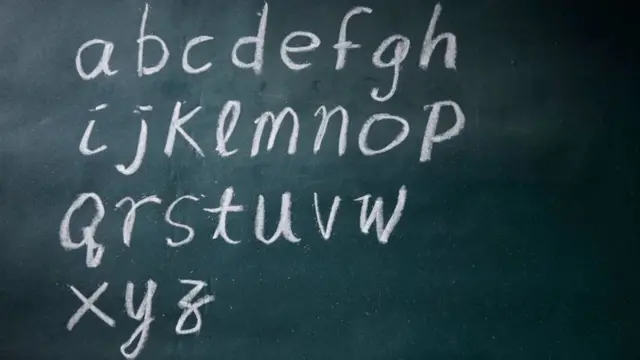 abcdefgh
ijklmnop
qrstuvw
xyz